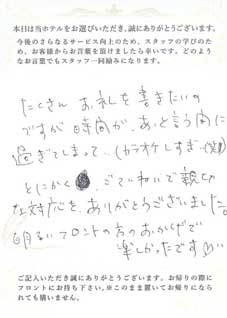 本日は当ホテルをお選びいただき、誠にありがとうございます。
今後のさらなるサービス向上のため、スタッフの学びのため、お客様からお言葉を頂けましたら幸いです。どのようなお言葉でもスタッフ一同励みになります。
たくさん お礼を書きたいの
ですが時間が、あっと言う間に
過ぎてしまって、(カラオケしすぎ…(笑)
とにかく ごていねいで親切
な対応を、ありがとうございました。
明るいフロントの方のおかげで
楽しかったです♡
ご記入いただき誠にありがとうございます。お帰りの際に
フロントにお持ち下さい。※このまま置いてお帰りになら
れても構いません。